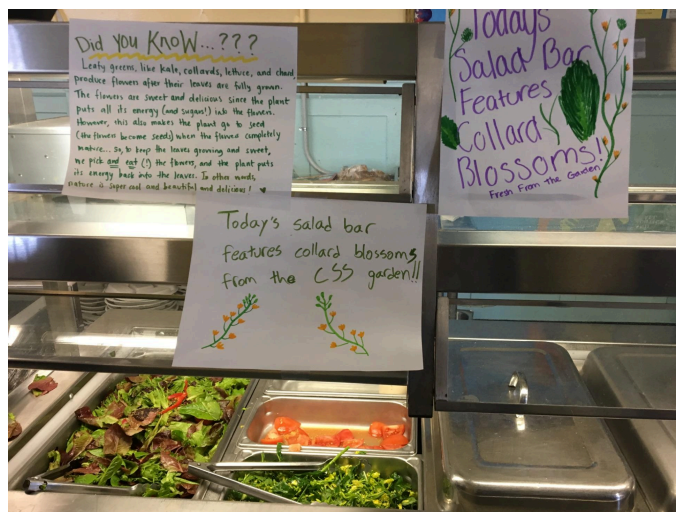 Did you KNOW...???
Leafy greens, like kale, collards, lettuce, and chard
produce flowers after their leaves are fully grown.
The flowers are sweet and delicious since the plant
puts all its energy (and sugars!) into the flowers.
However, this also makes the plant go to seed
(the flowers become seeds) when the flowers completely
mature... So, to keep the leaves growing and sweet,
we pick and eat (!) the flowers, and the plant puts
its energy back into the leaves. In other words,
nature is super cool and beautiful and delicious! ♥
Todays
Salad Bar
Features
Collard
Blossoms!
Fresh From the Garden
Today's salad bar
features collard blossoms
from the CSS garden!!